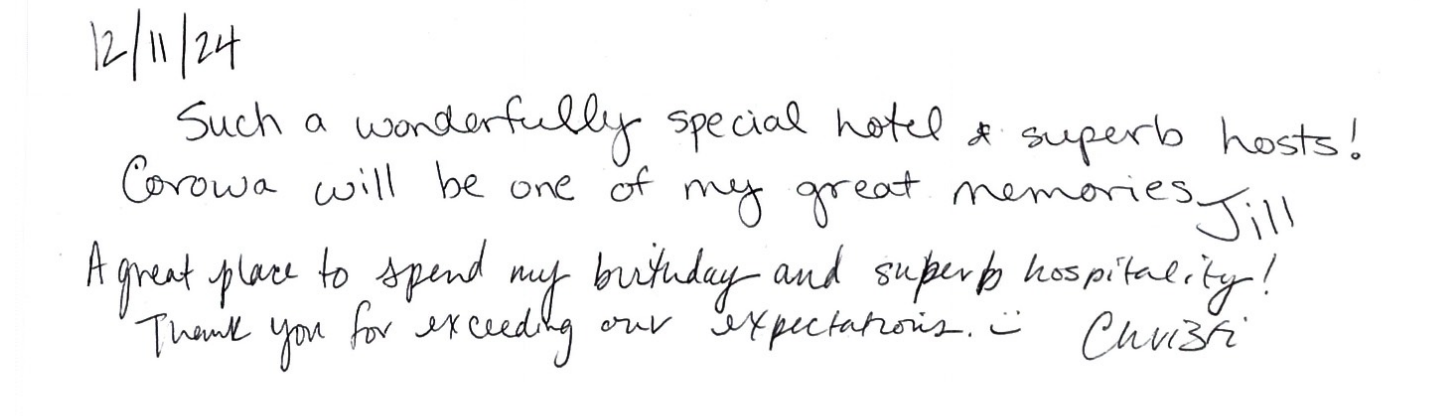 12/11/24
Such a wonderfully special hotel & superb hosts!
Corowa will be one of my great memories Jill
A great place to spend my birthday and superb hospitality!
Thank you for exceeding our expectations. :) Christi